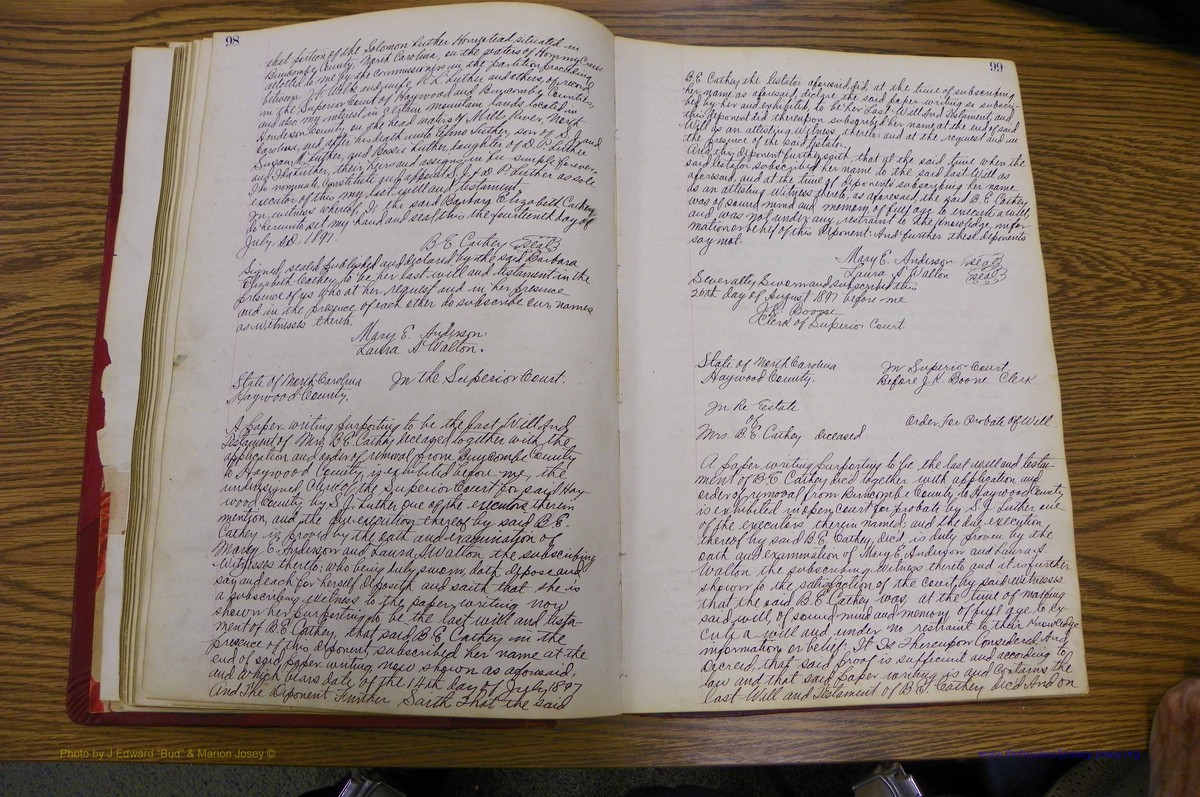 98
that portion of the Solomon Luther Homestead situated in
Buncombe County, North Carolina, on the waters of Hominy Creek
allotted to me by the commissioners in the partition proceeding
between J. H. Webb and wife, D. P. Luther and others, of record
in the Superior Court of Haywood and Buncombe Counties,
and also my interest in certain mountain lands located in
Henderson County, on the head waters of Mill River, North
Carolina, and after his death unto Glenn Luther, son of S. J. and
Susan R. Luther, and Bessie Luther, daughter of D. P. Luther
and Ida Luther, their heirs and assigns in fee simple forever.
I do nominate, constitute and appoint S. J. & D. P. Luther as sole
executor of this my last will and testament.
In witness whereof, I, the said Barbara Elizabeth Cathey,
do hereunto set my hand and seal this the fourteenth day of
July, A.D. 1897.
B. E. Cathey Seal
Signed, sealed, published and declared by the said Barbara
Elizabeth Cathey to be her last will and testament in the
presence of us who at her request and in her presence
and in the presence of each other do subscribe our names
as witnesses thereto.
Mary E. Anderson.
Laura A Walton.
State of North Carolina In the Superior Court.
Haywood County.
A paper writing purporting to be the last Will And
Testament of Mrs B. E. Cathey deceased together with the
application and order of removal from Buncombe County
to Haywood County, is exhibited before me, the
undersigned Clerk of the Superior Court for said Hay-
wood County by S. J. Luther one of the executors therein
mention, and the due execution thereof by said B. E.
Cathey is proved by the oath and examination of
Mary E. Anderson and Laura A Walton the subscribing
witnesses thereto; who being duly sworn, doth depose and
say and each for herself deposeth and saith that she is
a subscribing witness to the paper writing now
shown her purporting to be the last will and testa-
ment of B. E. Cathey, that said B. E. Cathey in the
presence of this deponent subscribed her name at the
end of said paper writing now shown as aforesaid,
and which bears date of the 14th day of July, 1897
And the Deponent Further Saith That the said
99
B. E. Cathey the testator aforesaid did, at the time of subscribing
her name as aforesaid, declare the said paper writing so subscri-
bed by her and exhibited, to be her Last Will And Testament, and
this deponent did thereupon subscribed her name at the end of said
Will as an attesting witness thereto and at the request and in
the presence of the said testator.
And this deponent further saith, that at the said time when the
said testator subscribed her name to the said last Will as
aforesaid, and at the time of deponents subscribing her name
as an attesting witness thereto, as aforesaid, the said B. E. Cathey
was of sound mind and memory, of full age to execute a will,
and was not under any restraint to the knowledge, infor-
mation or belief of this deponent: And further these deponents
say not.
Mary E. Anderson Seal
Laura A Walton Seal
Severally Sworn and subscribed this
26th day of August 1897 before me
J. K. Boone
Clerk of Superior Court
State of North Carolina In Superior Court
Haywood County. Before J. K. Boone Clerk.
In Re Estate
of Order For Probate Of Will.
Mrs. B. E. Cathey deceased.
A paper writing purporting to be the last will and testa-
ment of B. E. Cathey dec'd together with application and
order of removal from Buncombe County to Haywood County
is exhibited in open court for probate by S. J. Luther one
of the executors, therein named, and the due execution
thereof by said B. E. Cathey, dec'd, is duly proven by the
oath and examination of Mary E. Anderson and Laura A.
Walton the subscribing witness thereto and it is further
shown to the satisfaction of the Court, by said witnesses
that the said B. E. Cathey was, at the time of making
said will, of sound mind and memory of full age to ex-
cute a will and under no restraint to their knowledge
information or belief. It Is Thereupon Considered And
Decreed, that said proof is sufficient and according to
law and that said paper writing is and contains the
Last Will and Testament of B. E. Cathey dec'd And on
Photo by J Edward "Bud" & Marion Josey ©